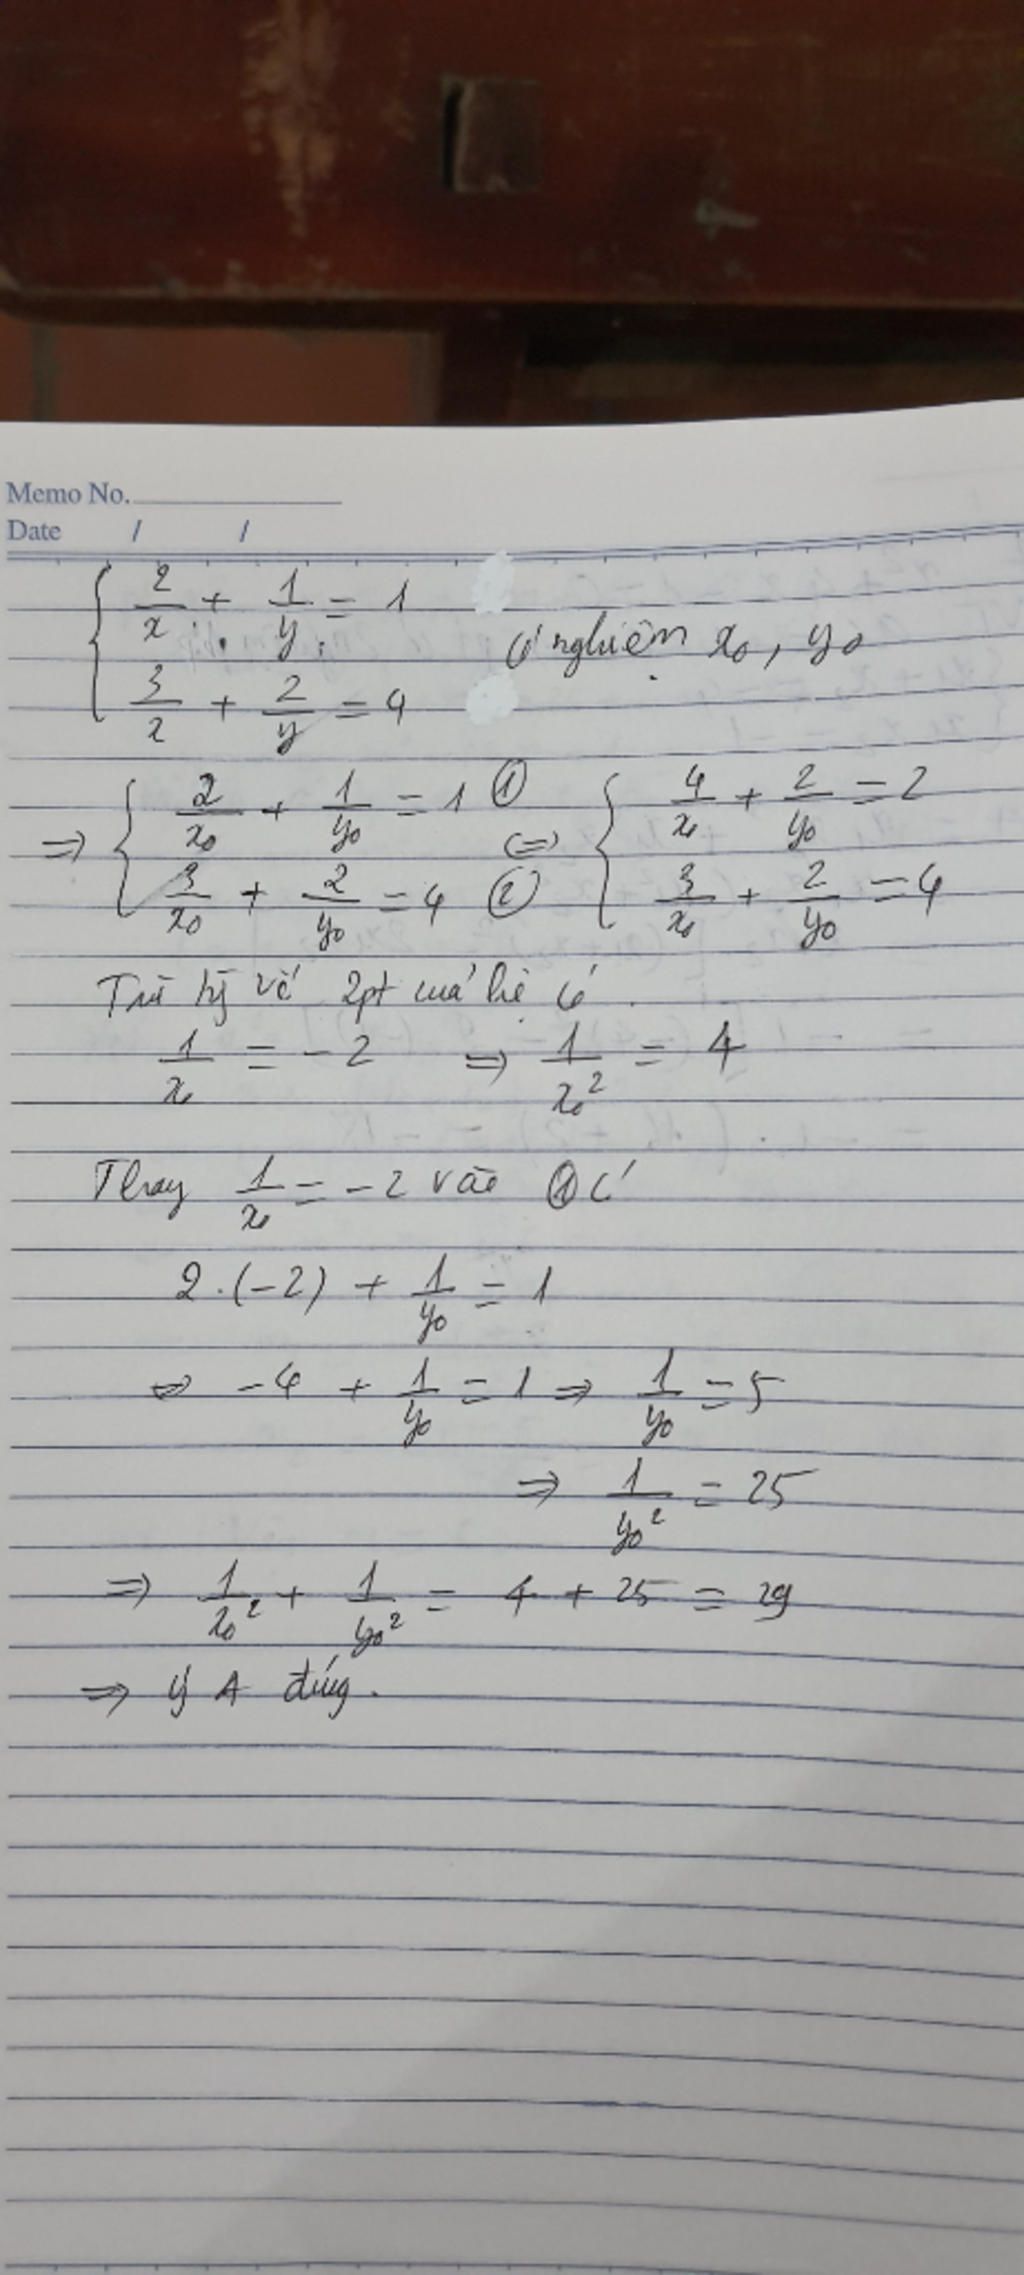 Memo No.
Date / /
{ 2/x + 1/y = 1
có nghiệm x₀, y₀
{ 3/x + 2/y = 4
⇒ { 2/x₀ + 1/y₀ = 1 ① ⇔ { 4/x₀ + 2/y₀ = 2
{ 3/x₀ + 2/y₀ = 4 ② { 3/x₀ + 2/y₀ = 4
Trừ từng vế 2pt của hệ có
1/x₀ = -2 ⇒ 1/x₀² = 4
Thay 1/x₀ = -2 vào ① có
2.(-2) + 1/y₀ = 1
⇔ -4 + 1/y₀ = 1 ⇒ 1/y₀ = 5
⇒ 1/y₀² = 25
⇒ 1/x₀² + 1/y₀² = 4 + 25 = 29
⇒ ý A đúng.